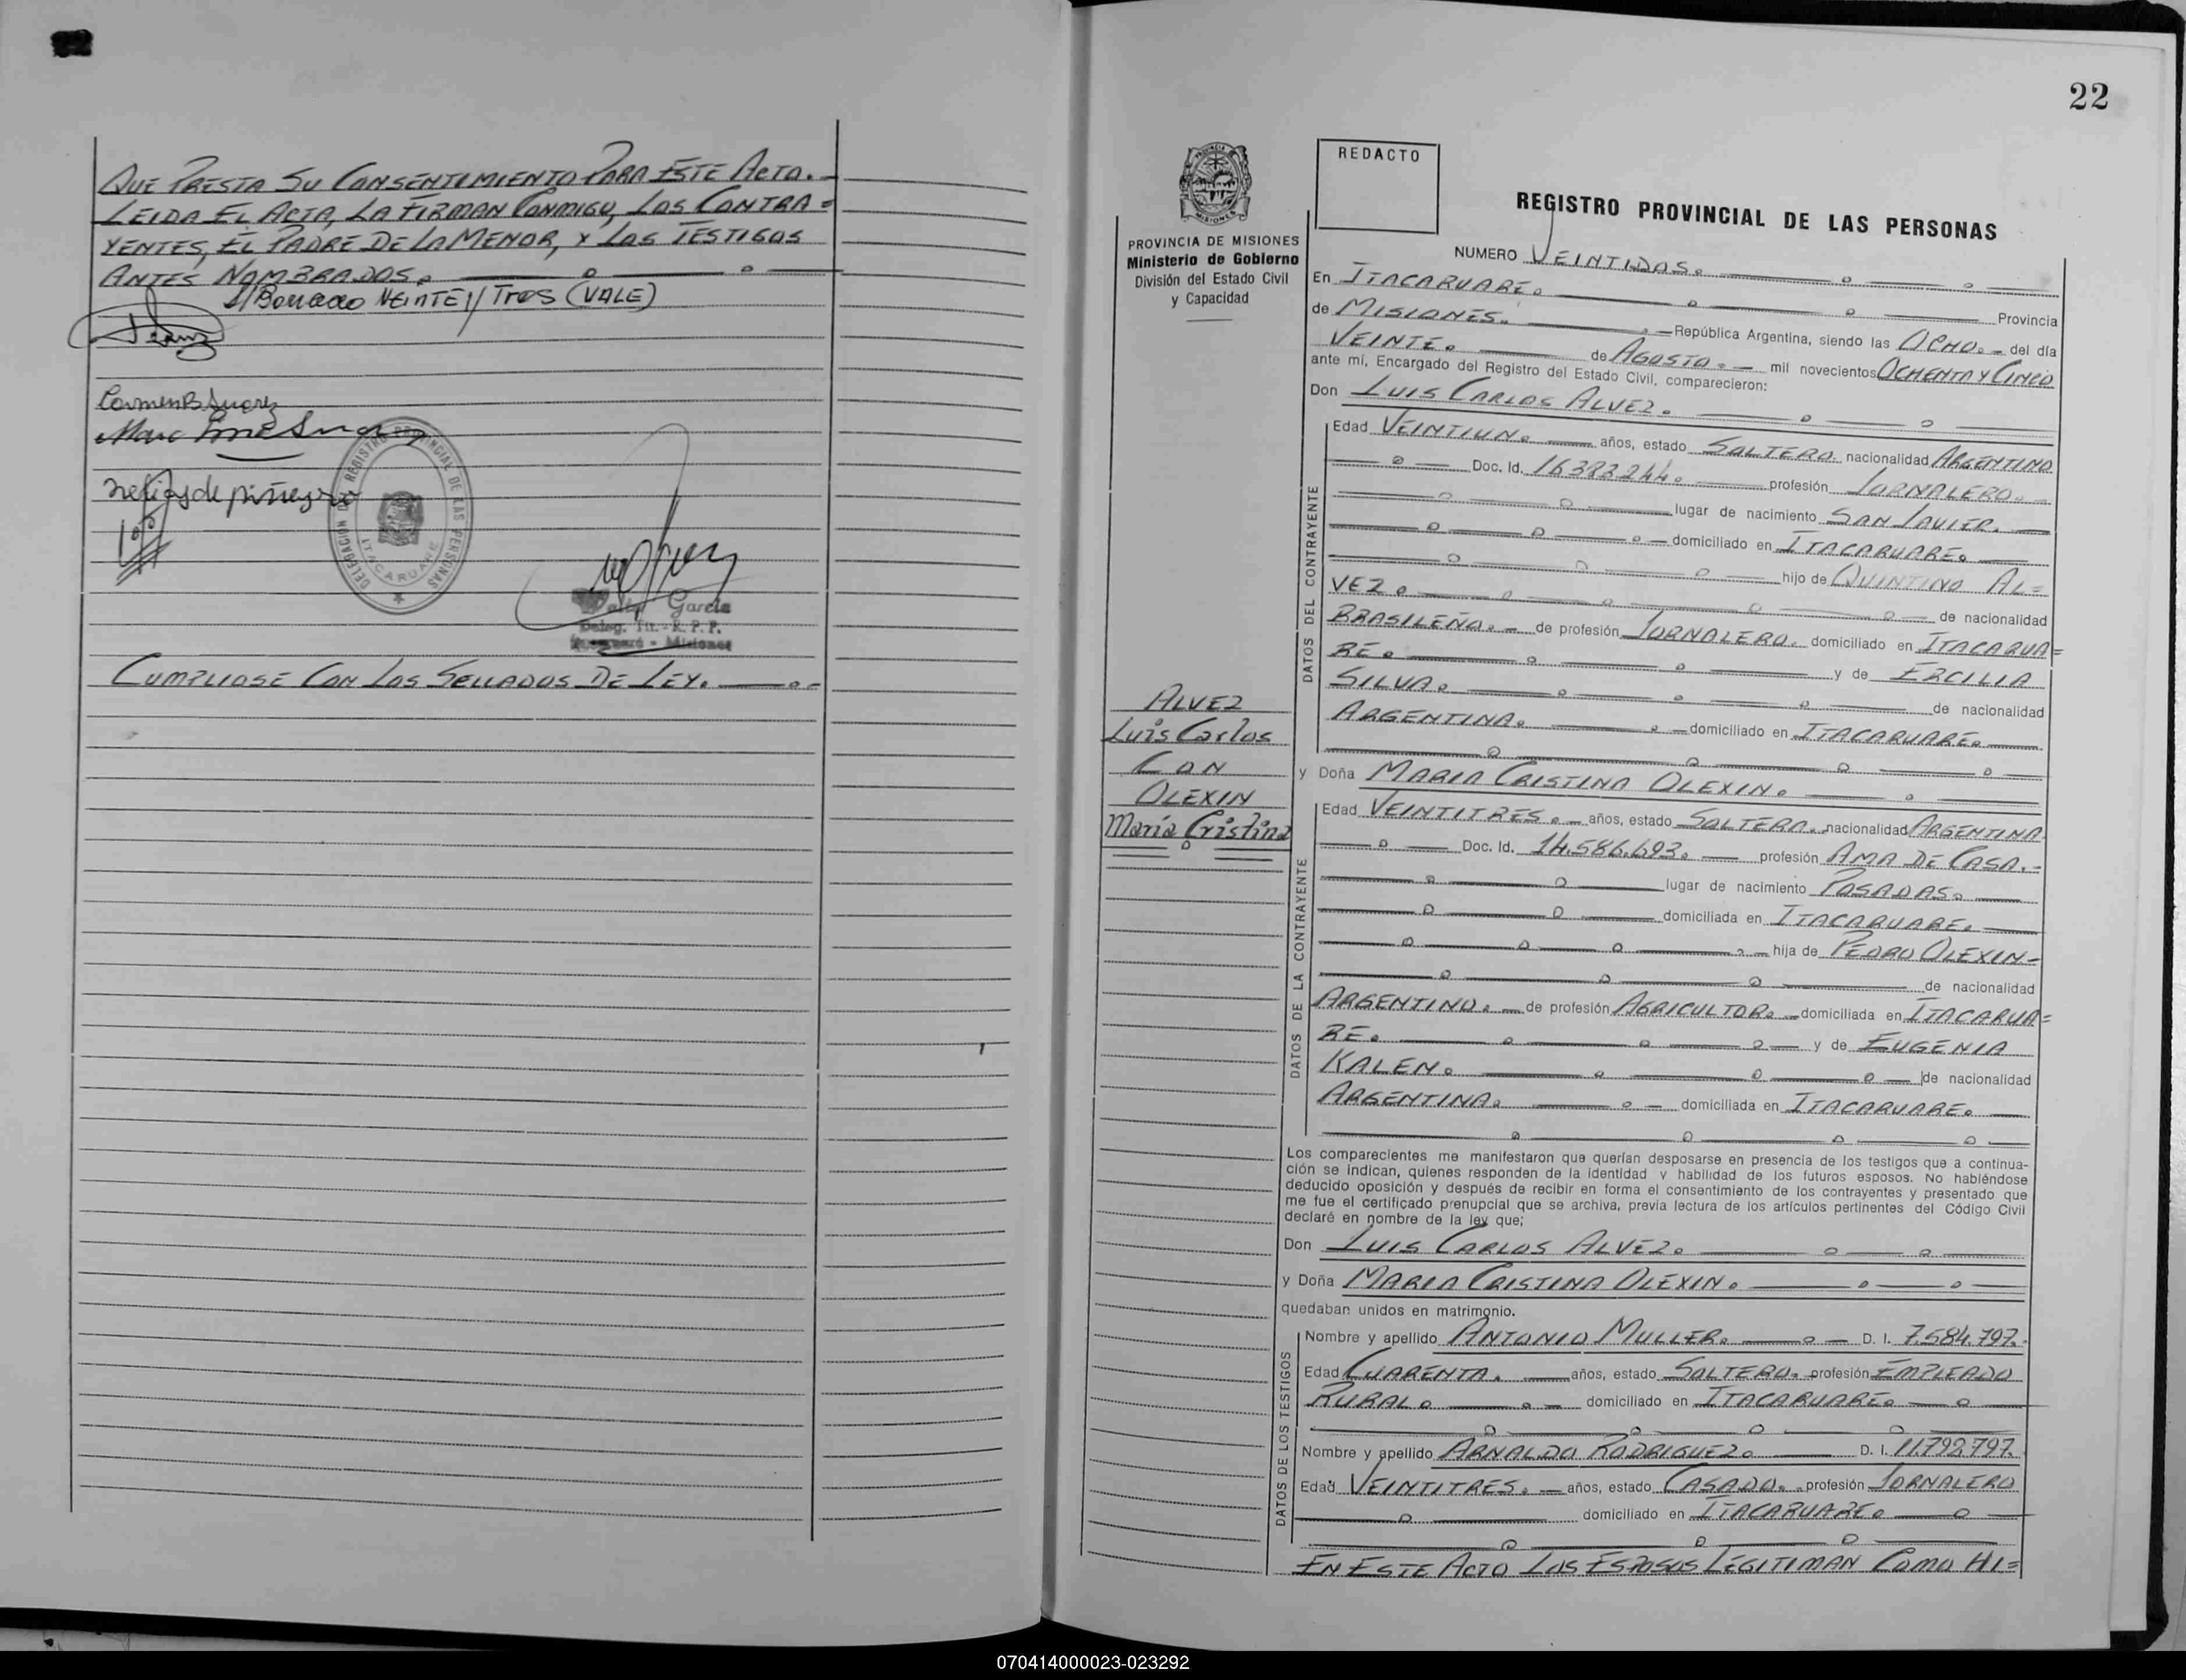 QUE PRESTA SU CONSENTIMIENTO PARA ESTE ACTO.
LEIDA EL ACTA, LA FIRMAN CONMIGO, LOS CONTRA=
YENTES, EL PADRE DE LA MENOR, Y LOS TESTIGOS
ANTES NOMBRADOS.
S/Borrado VEINTE y/ Tres (VALE)
Carmen B Suarez
DELEGACION DEL REGISTRO PROVINCIAL DE LAS PERSONAS
ITACARUARE
Garcia
Deleg. Tit. - R. P. P.
- Misiones
CUMPLIOSE CON LOS SELLADOS DE LEY.
22
PROVINCIA DE MISIONES
Ministerio de Gobierno
División del Estado Civil
y Capacidad
ALVEZ
Luis Carlos
CON
OLEXIN
María Cristina
REDACTO
REGISTRO PROVINCIAL DE LAS PERSONAS
NUMERO VEINTIDOS.
En ITACARUARE. Provincia
de MISIONES. República Argentina, siendo las OCHO. del día
VEINTE. de AGOSTO. mil novecientos OCHENTA Y CINCO
ante mí, Encargado del Registro del Estado Civil, comparecieron:
Don LUIS CARLOS ALVEZ.
DATOS DEL CONTRAYENTE
Edad VEINTIUN. años, estado SOLTERO. nacionalidad ARGENTINO
Doc. Id. 16.383.244. profesión JORNALERO.
lugar de nacimiento SAN JAVIER.
domiciliado en ITACARUARE.
hijo de QUINTINO AL=
VEZ. de nacionalidad
BRASILEÑO. de profesión JORNALERO. domiciliado en ITACARUA=
RE. y de ERCILIA
SILVA. de nacionalidad
ARGENTINA. domiciliado en ITACARUARE.
y Doña MARIA CRISTINA OLEXIN.
DATOS DE LA CONTRAYENTE
Edad VEINTITRES. años, estado SOLTERA. nacionalidad ARGENTINA
Doc. Id. 14.586.693. profesión AMA DE CASA.
lugar de nacimiento POSADAS.
domiciliada en ITACARUARE.
hija de PEDRO OLEXIN
de nacionalidad
ARGENTINO. de profesión AGRICULTOR. domiciliada en ITACARUA=
RE. y de EUGENIA
KALEN. de nacionalidad
ARGENTINA. domiciliada en ITACARUARE.
Los comparecientes me manifestaron que querían desposarse en presencia de los testigos que a continua-
ción se indican, quienes responden de la identidad y habilidad de los futuros esposos. No habiéndose
deducido oposición y después de recibir en forma el consentimiento de los contrayentes y presentado que
me fue el certificado prenupcial que se archiva, previa lectura de los artículos pertinentes del Código Civil
declaré en nombre de la ley que;
Don LUIS CARLOS ALVEZ.
y Doña MARIA CRISTINA OLEXIN.
quedaban unidos en matrimonio.
DATOS DE LOS TESTIGOS
Nombre y apellido ANTONIO MULLER. D. I. 7.584.797.
Edad CUARENTA. años, estado SOLTERO. profesión EMPLEADO
RURAL. domiciliado en ITACARUARE.
Nombre y apellido ARNALDO RODRIGUEZ. D. I. 11.792.797.
Edad VEINTITRES. años, estado CASADO. profesión JORNALERO
domiciliado en ITACARUARE.
EN ESTE ACTO LOS ESPOSOS LEGITIMAN COMO HI=
070414000023-023292